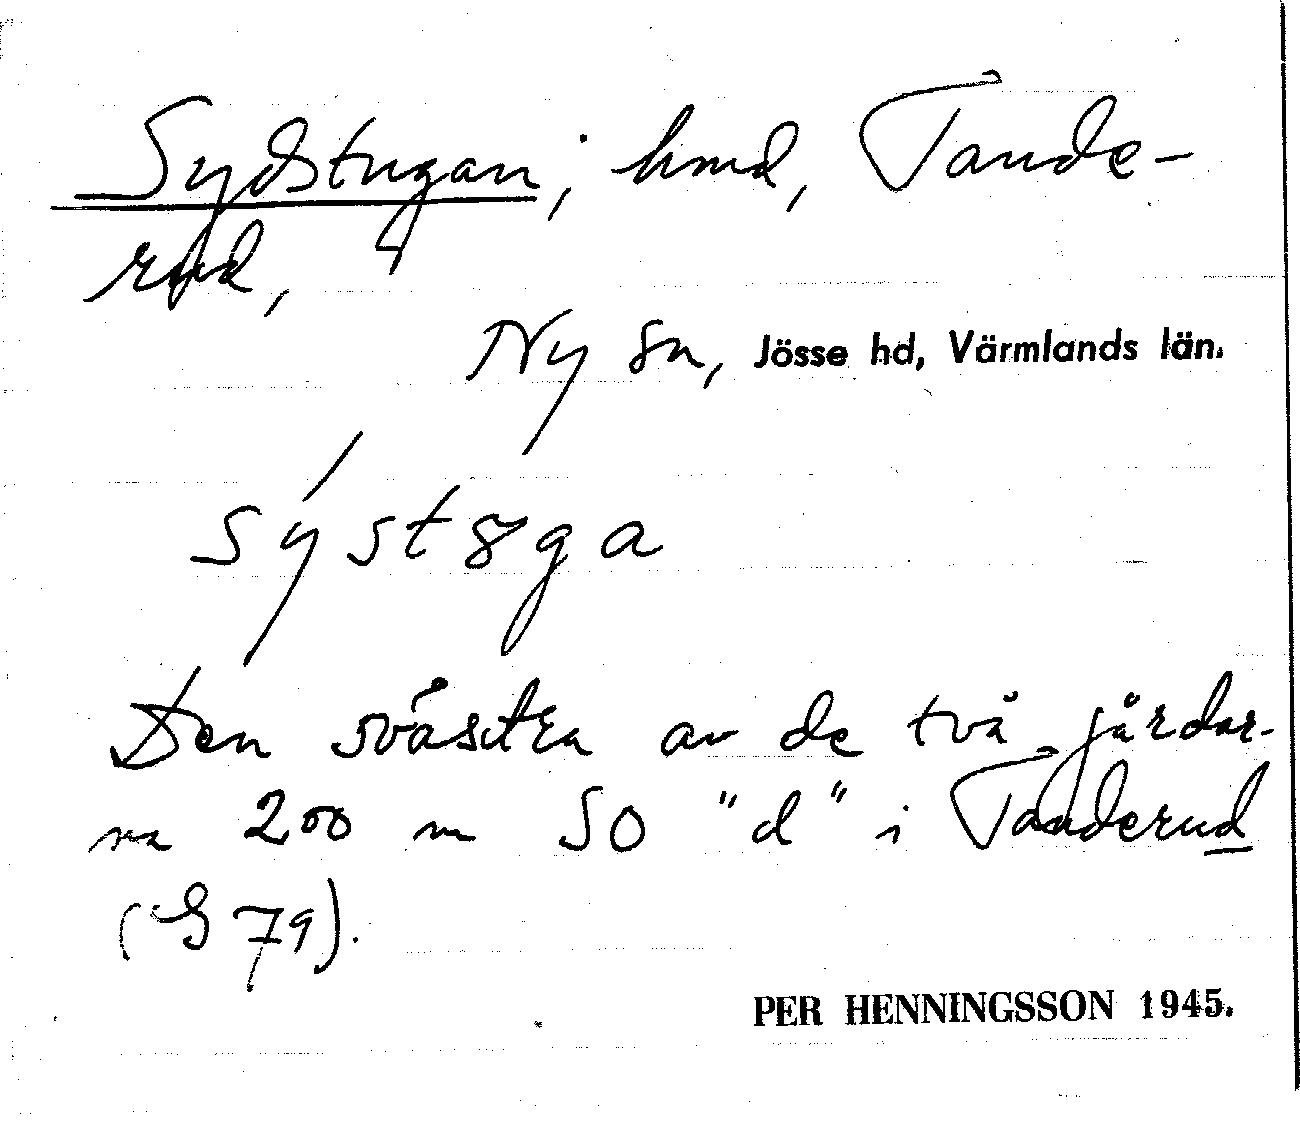 Sydstugan; hmd, Tande-
rud,
Ny sn, Jösse hd, Värmlands län.
sýstȣga
Den sv västra av de två gårdar-
na 200 m SO "d" i Tanderud
(G 79).
PER HENNINGSSON 1945.